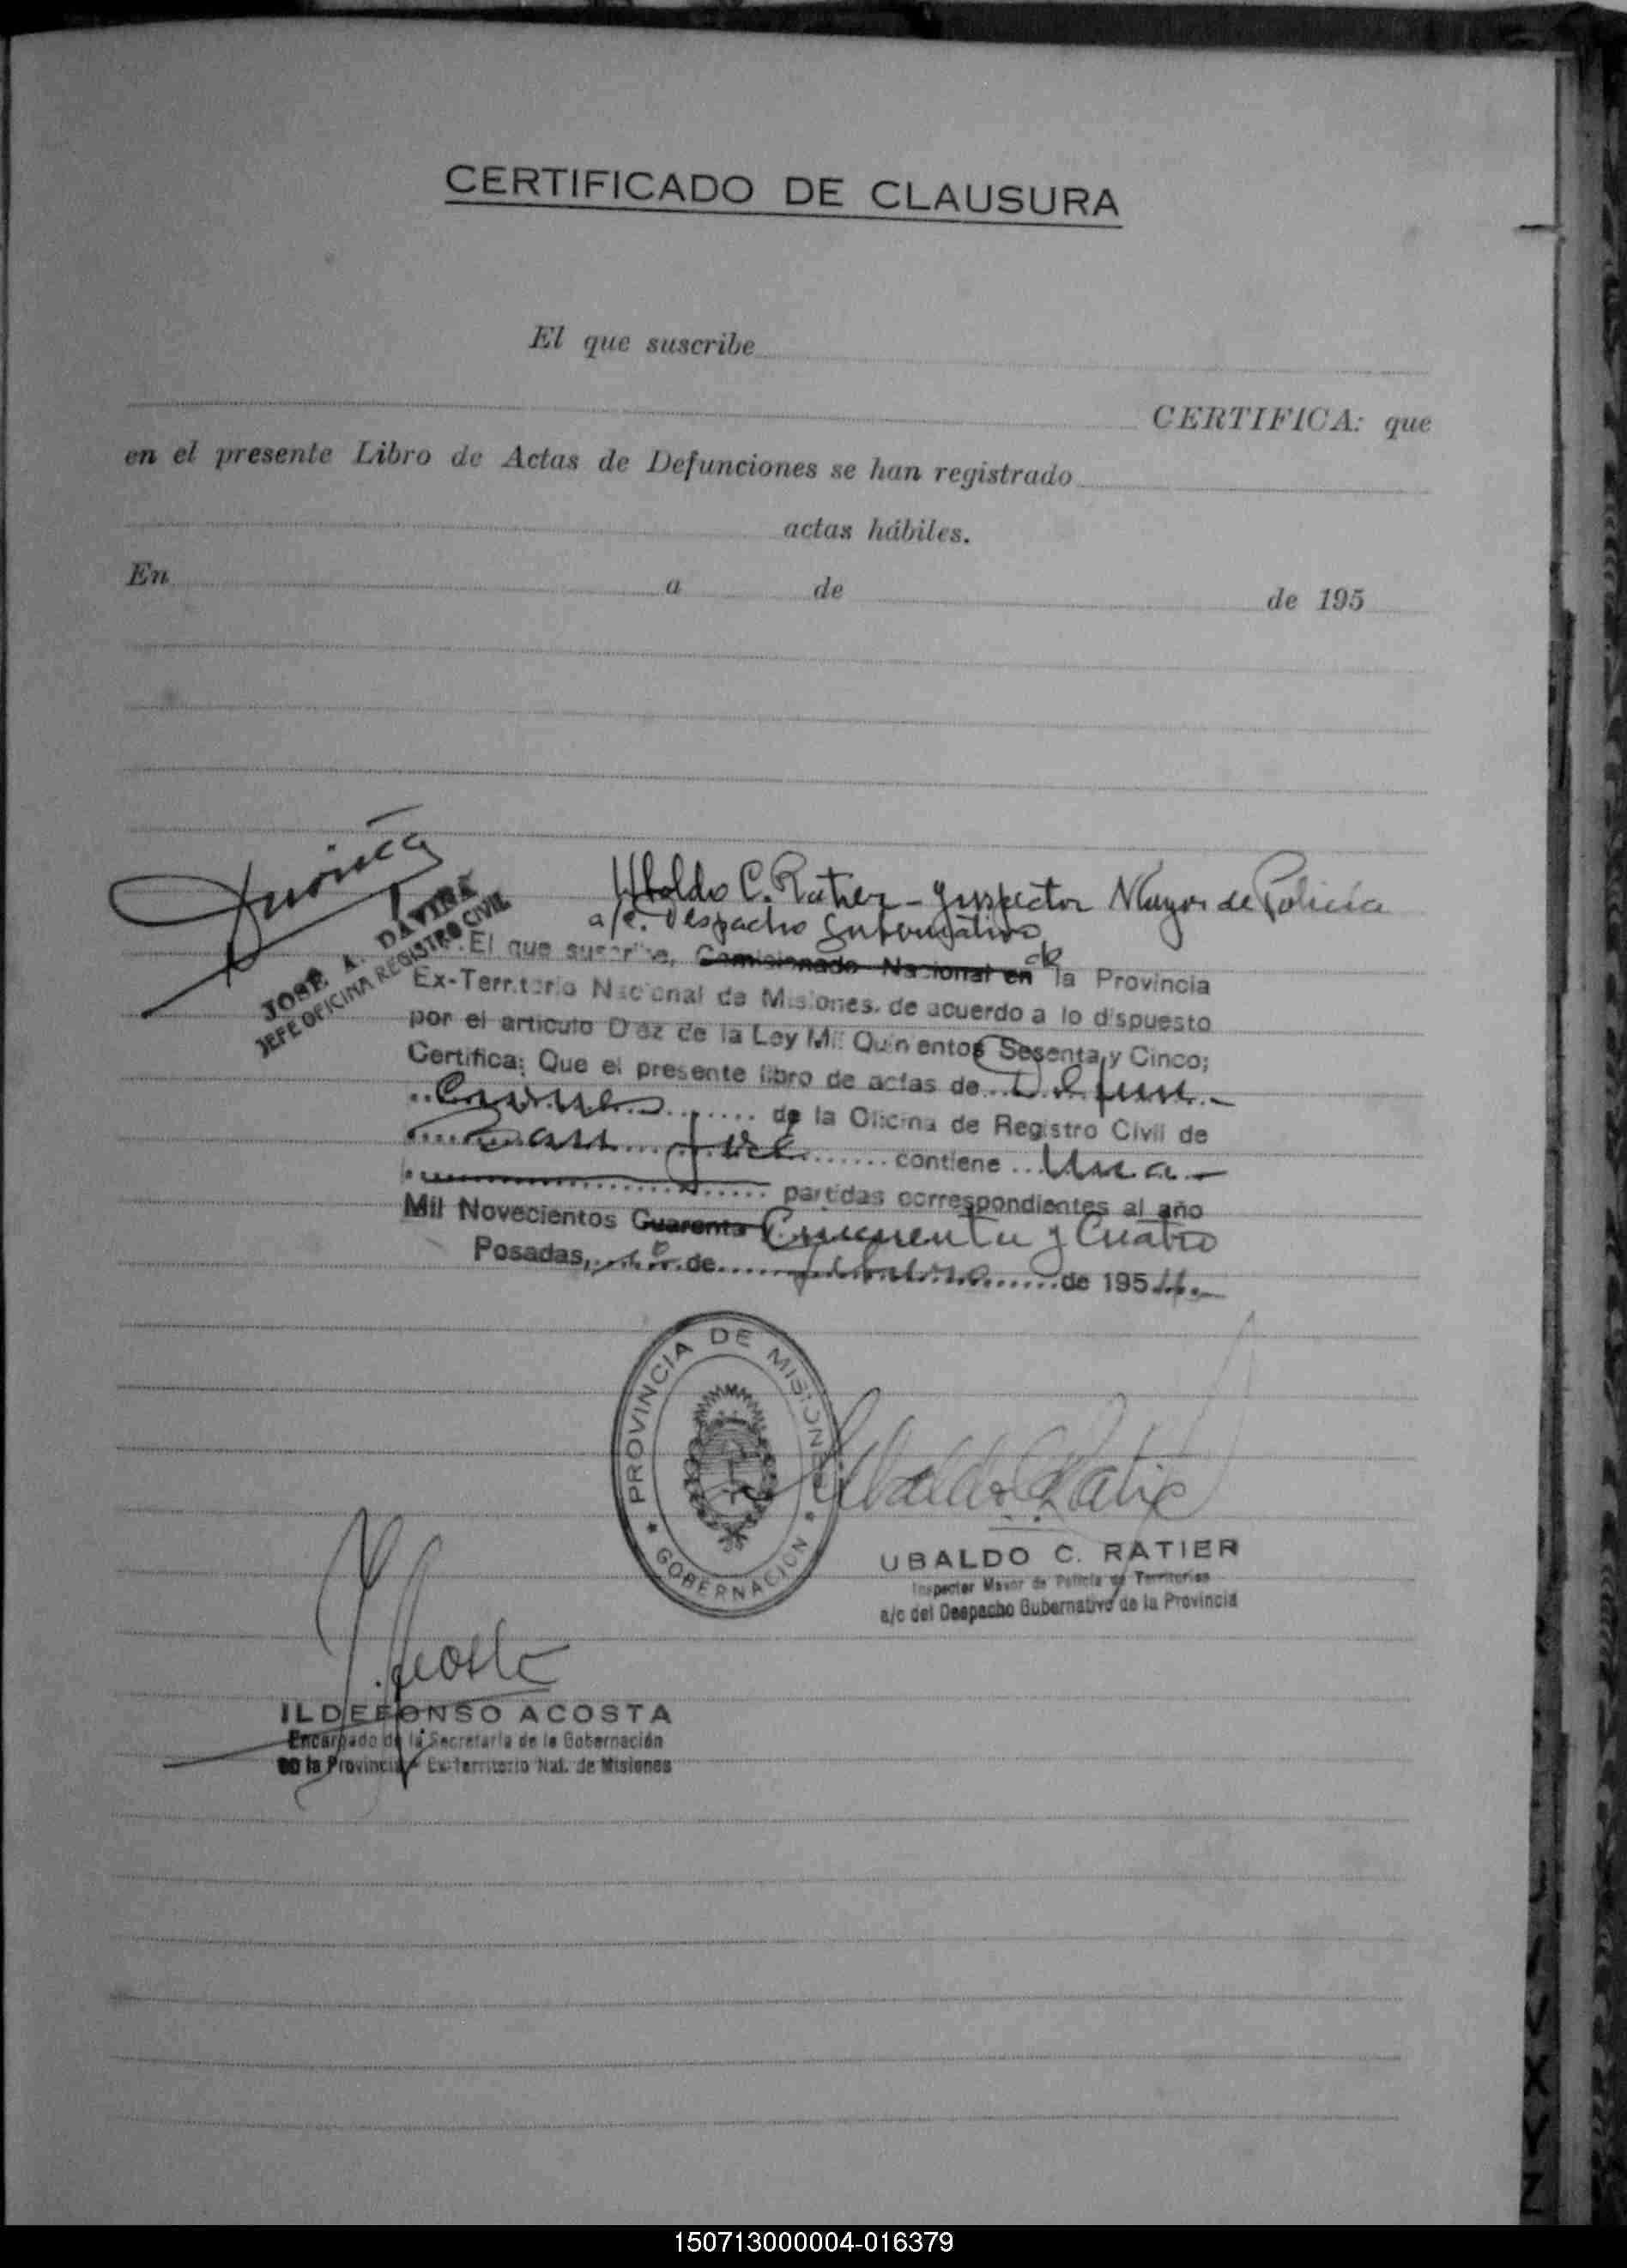 CERTIFICADO DE CLAUSURA
El que suscribe
CERTIFICA: que
en el presente Libro de Actas de Defunciones se han registrado
actas hábiles.
En a de de 195
JOSE A. DAVIÑA
JEFE OFICINA REGISTRO CIVIL
Ubaldo C. Ratier - Inspector Mayor de Policía
a/c. Despacho Gubernativo
El que suscribe, Comisionado Nacional en de la Provincia
Ex-Territorio Nacional de Misiones, de acuerdo a lo dispuesto
por el artículo Diez de la Ley Mil Quinientos Sesenta y Cinco;
Certifica: Que el presente libro de actas de Defun-
ciones de la Oficina de Registro Civil de
San José contiene Una
partidas correspondientes al año
Mil Novecientos Cuarenta y Cincuenta y Cuatro
Posadas, de de 195
PROVINCIA DE MISIONES
GOBERNACION
Ubaldo C. Ratier
UBALDO C. RATIER
Inspector Mayor de Policía de Territorios
a/c del Despacho Gubernativo de la Provincia
I. Acosta
ILDEFONSO ACOSTA
Encargado de la Secretaría de la Gobernación
de la Provincia Ex-Territorio Nal. de Misiones
U
V
X
Y
Z
150713000004-016379